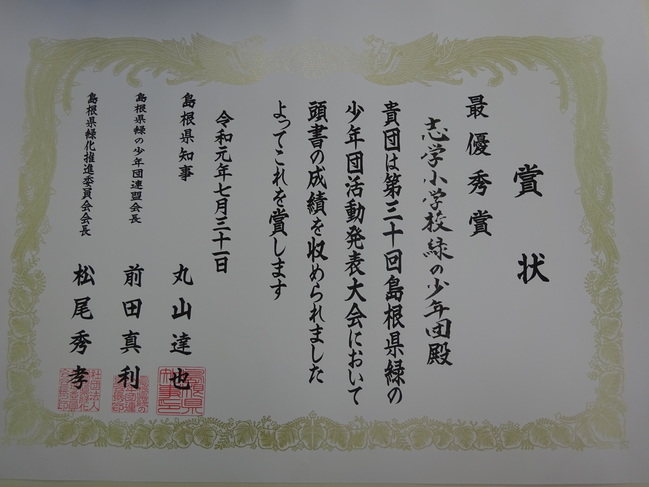 賞状
最優秀賞
志学小学校緑の少年団殿
貴団は第三十回島根県緑の
少年団活動発表大会において
頭書の成績を収められました
よってこれを賞します
令和元年七月三十一日
島根県知事 丸山達也
島根県緑の少年団連盟会長 前田真利
島根県緑化推進委員会会長 松尾秀孝